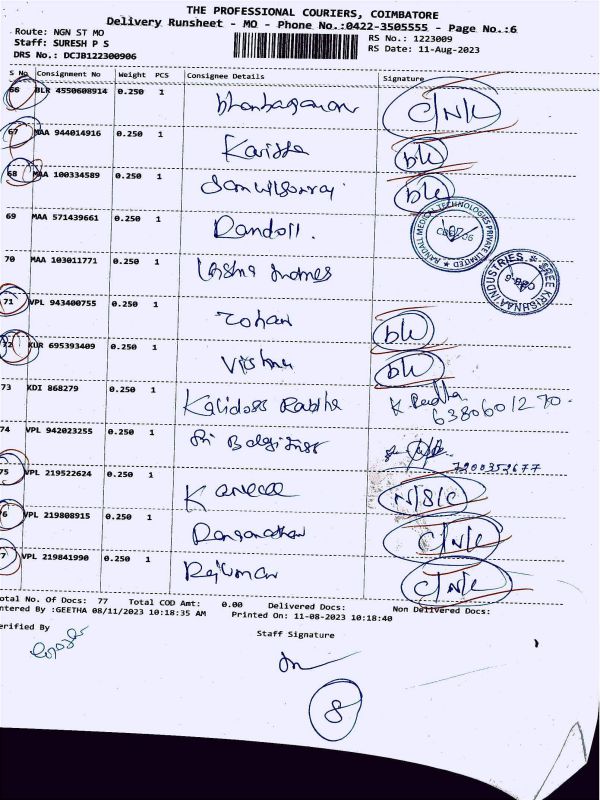 THE PROFESSIONAL COURIERS, COIMBATORE
Delivery Runsheet - MO - Phone No.:0422-3505555 - Page No.:6
Route: NGN ST MO
RS No.: 1223009
Staff: SURESH P S
RS Date: 11-Aug-2023
DRS No.: DCJB122300906
S No. Consignment No Weight PCS Consignee Details Signature
66 BLR 4550608914 0.250 1 C/N/L
67 MAA 944014916 0.250 1 blk
68 MAA 100334589 0.250 1 blk
69 MAA 571439661 0.250 1
RANDALL MEDICAL TECHNOLOGIES PRIVATE LIMITED
70 MAA 103011771 0.250 1
SREE KRISHNAA INDUSTRIES
71 VPL 943400755 0.250 1 Rohan blk
72 KUR 695393409 0.250 1 Vishnu blk
73 KDI 868279 0.250 1 Kalidoss Rabitha
6380601270
74 VPL 942023255 0.250 1 Sri Balaji
7200352677
75 VPL 219522624 0.250 1 N/S/C
76 VPL 219808915 0.250 1 Ranganathan C/N/L
77 VPL 219841990 0.250 1 Rajkumar C/N/L
Total No. Of Docs: 77 Total COD Amt: 0.00 Delivered Docs: Non Delivered Docs:
Entered By :GEETHA 08/11/2023 10:18:35 AM Printed On: 11-08-2023 10:18:40
Verified By Staff Signature
8